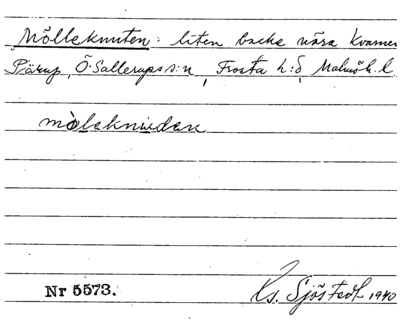 Mölleknuten: liten backe nära kvarnen
Pärup, Ö. Sallerups s:n, Frosta h:d, Malmöh. l.
mölekniuden
Nr 5573.
Gs. Sjöstedt 1940